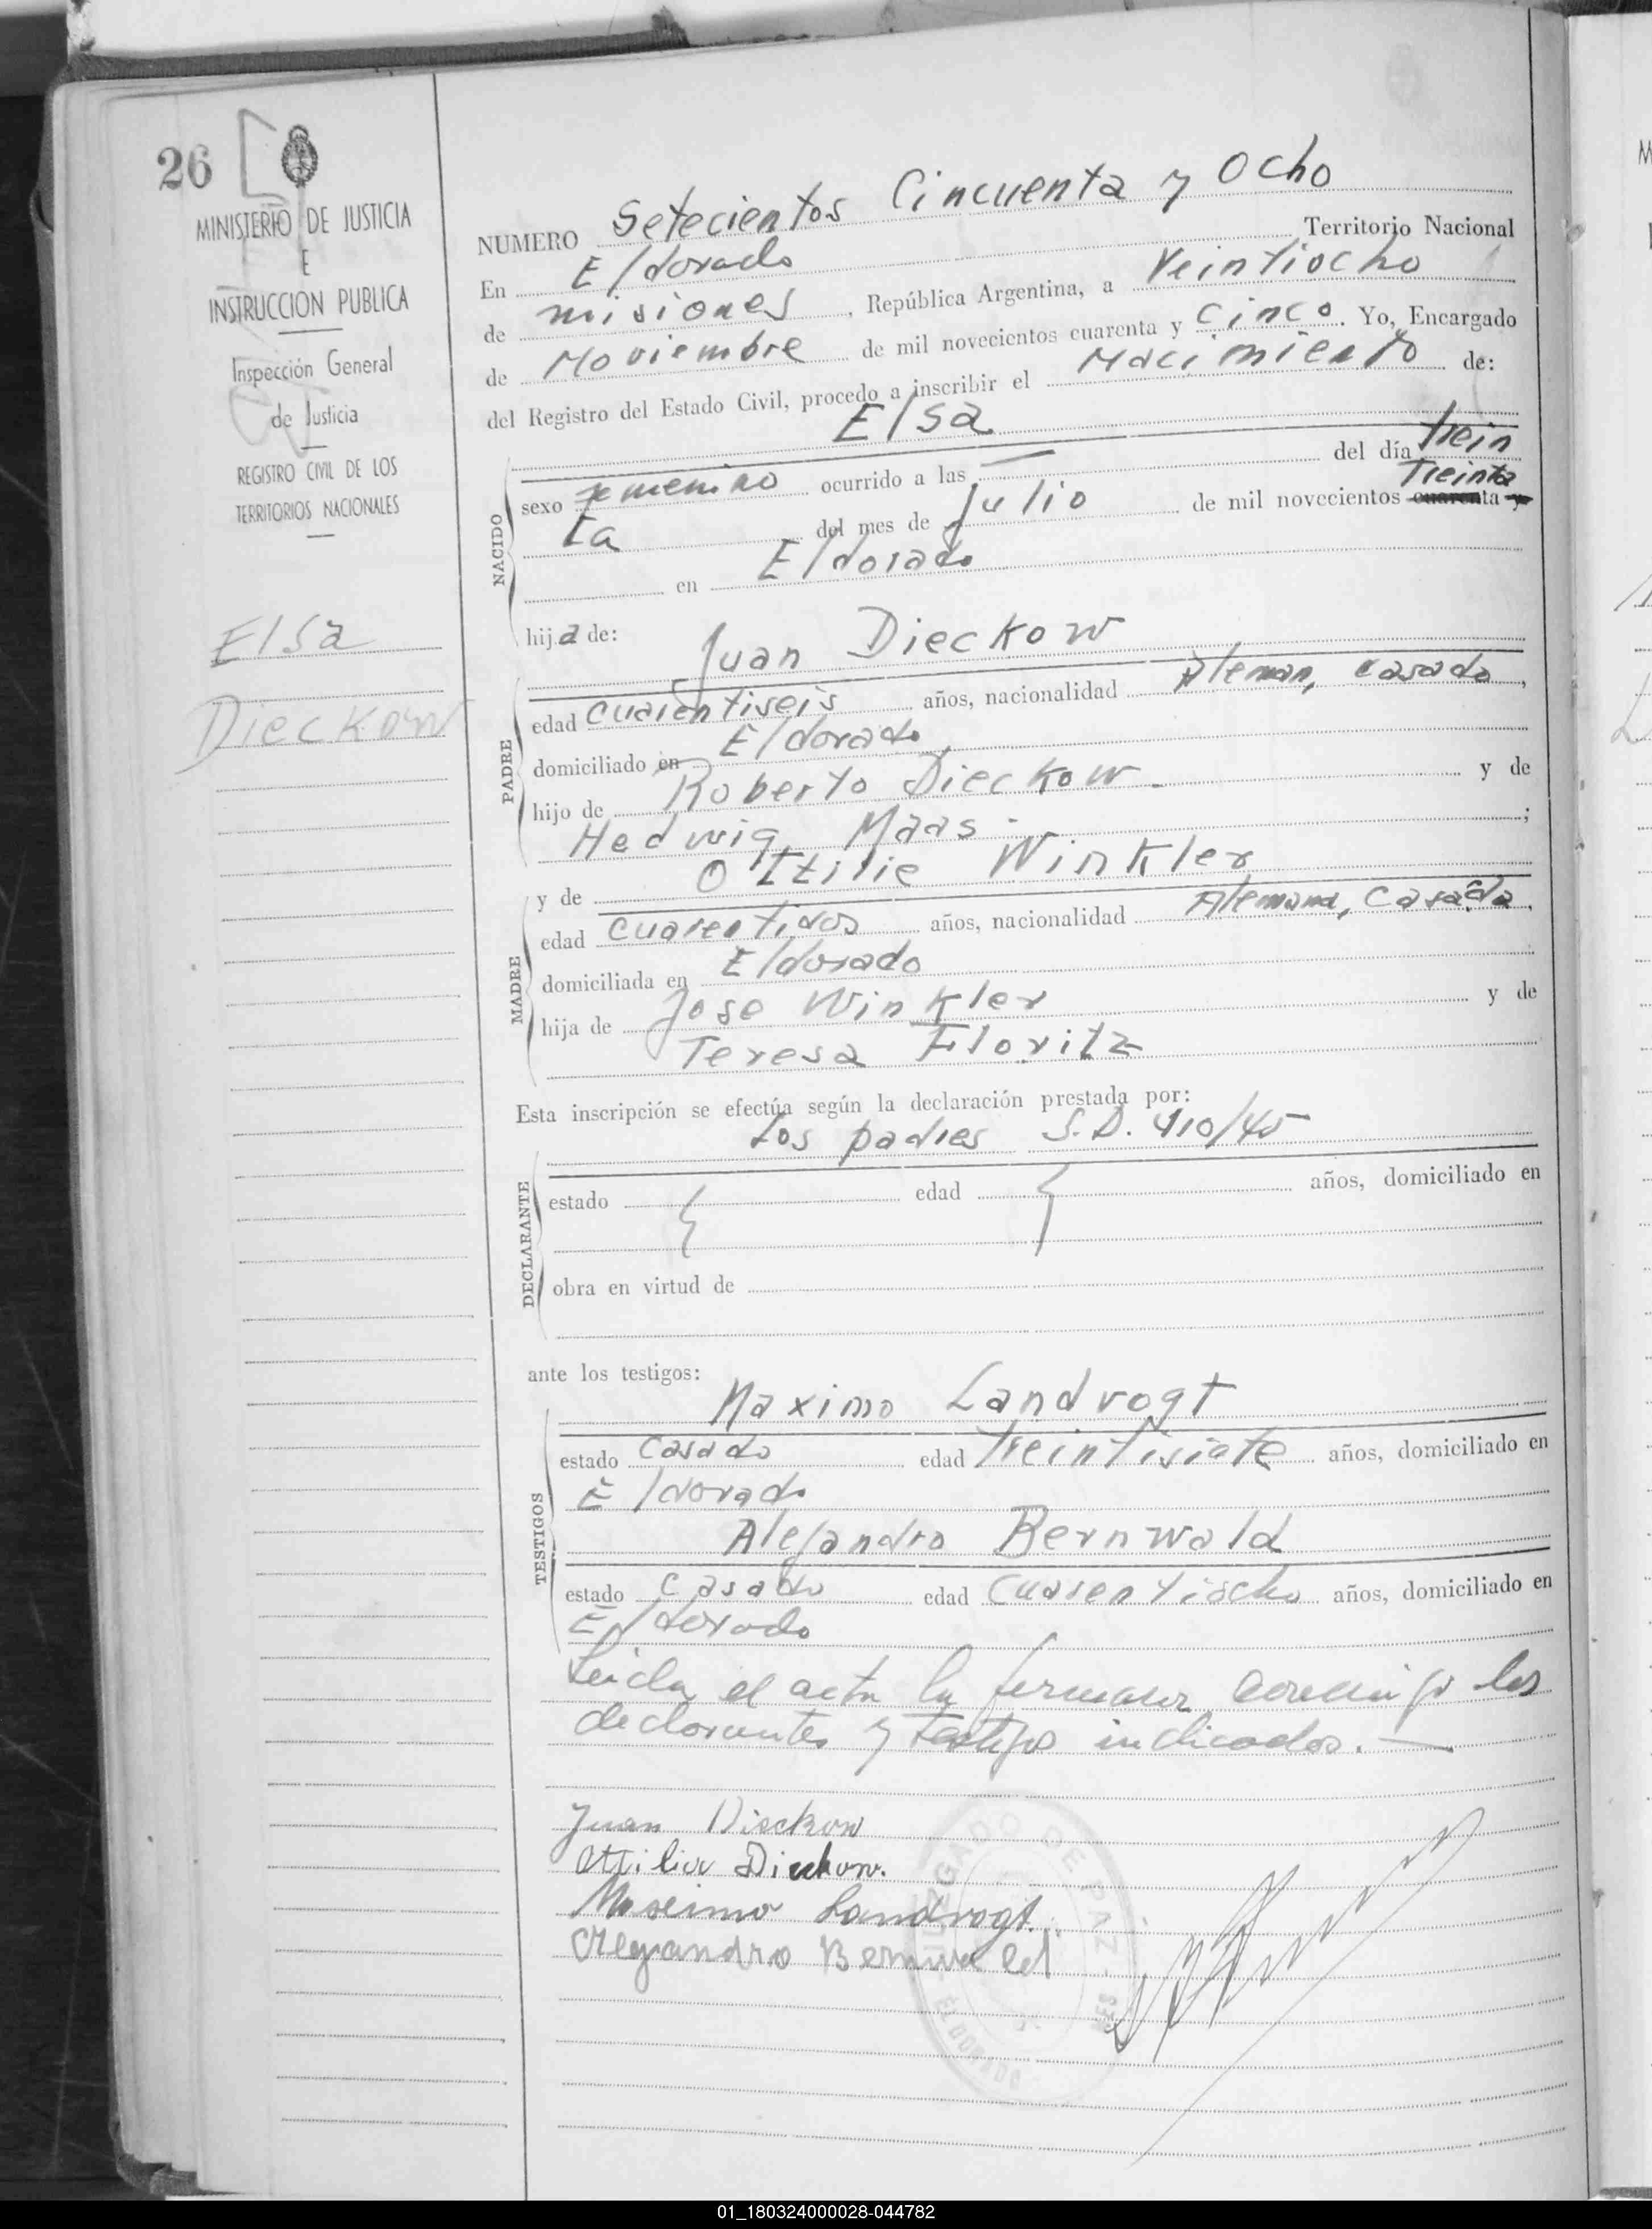 26
MINISTERIO DE JUSTICIA
E
INSTRUCCION PUBLICA
Inspección General
de Justicia
REGISTRO CIVIL DE LOS
TERRITORIOS NACIONALES
Elsa
Dieckow
NUMERO Setecientos Cincuenta y Ocho
En Eldorado Territorio Nacional
de misiones, República Argentina, a Veintiocho
de Noviembre de mil novecientos cuarenta y Cinco. Yo, Encargado
del Registro del Estado Civil, procedo a inscribir el Nacimiento de:
Elsa
NACIDO
sexo femenino ocurrido a las — del día trein
ta del mes de Julio de mil novecientos Treinta cuarenta y
en Eldorado
hija de:
Juan Dieckow
PADRE
edad cuarentiseis años, nacionalidad Aleman, casado,
domiciliado en Eldorado
hijo de Roberto Dieckow y de
Hedwig Maas;
MADRE
y de Ottilie Winkler
edad cuarentidos años, nacionalidad Alemana, Casada,
domiciliada en Eldorado
hija de Jose Winkler y de
Teresa Floritz
Esta inscripción se efectúa según la declaración prestada por:
Los padres S.D. 410/45
DECLARANTE
estado edad años, domiciliado en
obra en virtud de
ante los testigos:
Maximo Landvogt
TESTIGOS
estado Casado edad treintisiete años, domiciliado en
Eldorado
Alejandro Bernwald
estado Casado edad Cuarentiocho años, domiciliado en
Eldorado
Leida el acta la firmaron conmigo los
declarantes y testigos indicados.—
Juan Dieckow
Ottilie Dieckow.
Maximo Landvogt.
Alejandro Bernwald
JUZGADO DE PAZ
ELDORADO
01_180324000028-044782